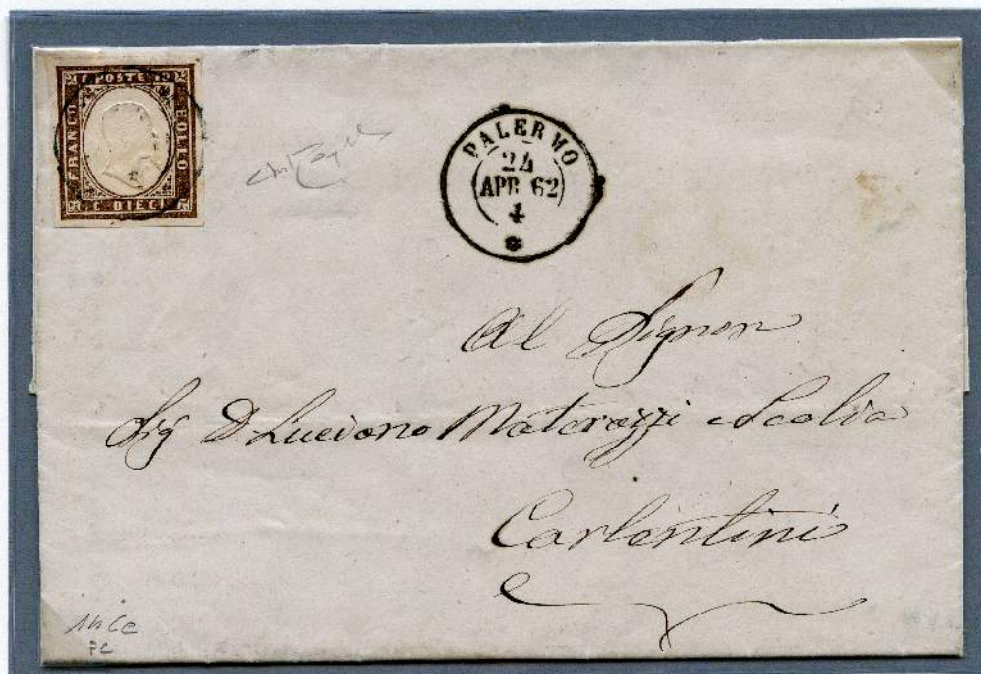 POSTE
FRANCO
BOLLO
C. DIECI
PALERMO
24
APR 62
4
Al Signor
Sig D. Luciano Materazzi e Scolia
Carlentini
14 Ce